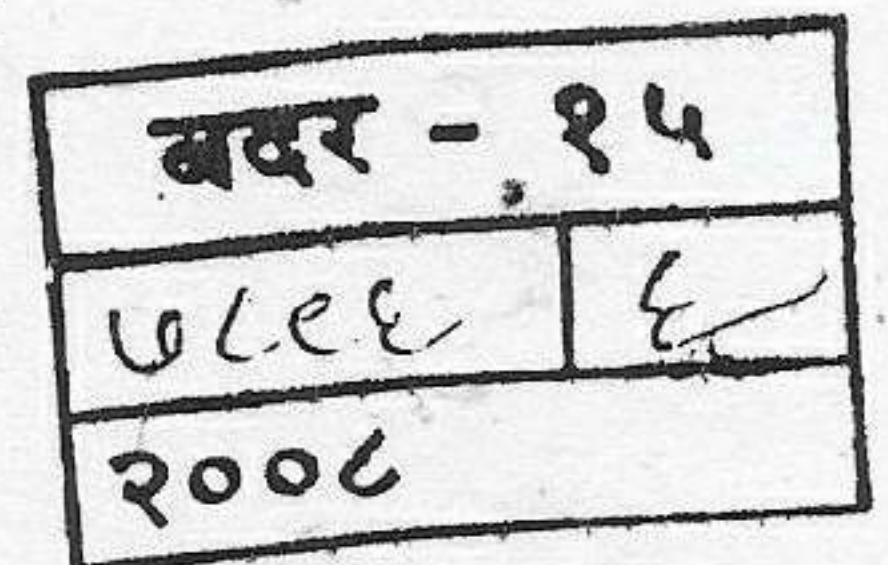 बदर - १५
७८९६ ६
२००८